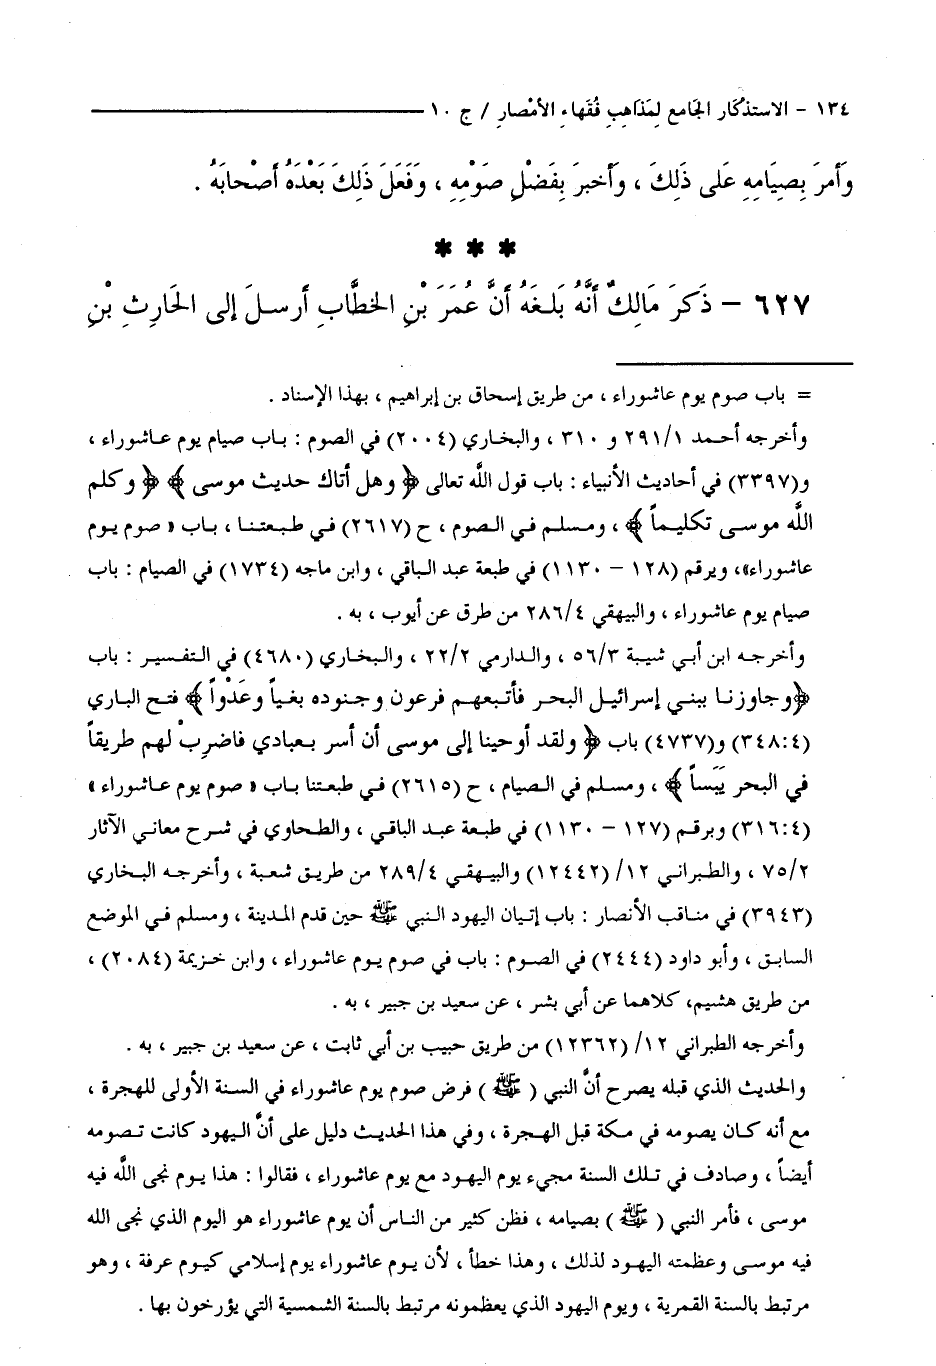 ١٣٤ - الاستذكار الجامع لمذاهب فقهاء الأمصار / ج ١٠
وَأَمرَ بِصِيَامِهِ عَلى ذَلِكَ ، وَأَخبرَ بِفَضْلِ صَوْمِهِ ، وَفَعَلَ ذَلِكَ بَعْدَهُ أَصْحابَهُ .
* * *
٦٢٧ - ذَكرَ مَالِكٌ أَنَّهُ بَلغَهُ أَنَّ عُمَرَ بْنِ الخطَّابِ أَرسلَ إلى الحَارِثِ بْنِ
= باب صوم يوم عاشوراء ، من طريق إسحاق بن إبراهيم ، بهذا الإسناد .
وأخرجه أحمد ٢٩١/١ و ٣١٠ ، والبخاري (٢٠٠٤) في الصوم : باب صيام يوم عاشوراء ،
و(٣٣٩٧) في أحاديث الأنبياء : باب قول الله تعالى ﴿ وهل أتاك حديث موسى ﴾ ﴿ وكلم
الله موسى تكليماً ﴾ ، ومسلم في الصوم ، ح (٢٦١٧) في طبعتنا ، باب « صوم يوم
عاشوراء»، وبرقم (١٢٨ - ١١٣٠) في طبعة عبد الباقي ، وابن ماجه (١٧٣٤) في الصيام : باب
صيام يوم عاشوراء ، والبيهقي ٢٨٦/٤ من طرق عن أيوب ، به .
وأخرجه ابن أبي شيبة ٥٦/٣ ، والدارمي ٢٢/٢ ، والبخاري (٤٦٨٠) في التفسير : باب
﴿وجاوزنا ببني إسرائيل البحر فأتبعهم فرعون وجنوده بغياً وعَدْواً ﴾ فتح الباري
(٣٤٨:٤) و(٤٧٣٧) باب ﴿ ولقد أوحينا إلى موسى أن أسر بعبادي فاضرِبْ لهم طريقاً
في البحر يَبَساً ﴾ ، ومسلم في الصيام ، ح (٢٦١٥) في طبعتنا باب « صوم يوم عاشوراء »
(٣١٦:٤) وبرقم (١٢٧ - ١١٣٠) في طبعة عبد الباقي ، والطحاوي في شرح معاني الآثار
٧٥/٢ ، والطبراني ١٢/ (١٢٤٤٢) والبيهقي ٢٨٩/٤ من طريق شعبة ، وأخرجه البخاري
(٣٩٤٣) في مناقب الأنصار : باب إتيان اليهود النبي ﷺ حين قدم المدينة ، ومسلم في الموضع
السابق ، وأبو داود (٢٤٤٤) في الصوم : باب في صوم يوم عاشوراء ، وابن خزيمة (٢٠٨٤) ،
من طريق هشيم، كلاهما عن أبي بشر ، عن سعيد بن جبير ، به .
وأخرجه الطبراني ١٢/ (١٢٣٦٢) من طريق حبيب بن أبي ثابت ، عن سعيد بن جبير ، به .
والحديث الذي قبله يصرح أنَّ النبي ( ﷺ ) فرض صوم يوم عاشوراء في السنة الأولى للهجرة ،
مع أنه كان يصومه في مكة قبل الهجرة ، وفي هذا الحديث دليل على أنَّ اليهود كانت تصومه
أيضاً ، وصادف في تلك السنة مجيء يوم اليهود مع يوم عاشوراء ، فقالوا : هذا يوم نجى الله فيه
موسى ، فأمر النبي ( ﷺ ) بصيامه ، فظن كثير من الناس أن يوم عاشوراء هو اليوم الذي نجى الله
فيه موسى وعظمته اليهود لذلك ، وهذا خطأ ، لأن يوم عاشوراء يوم إسلامي كيوم عرفة ، وهو
مرتبط بالسنة القمرية ، ويوم اليهود الذي يعظمونه مرتبط بالسنة الشمسية التي يؤرخون بها .